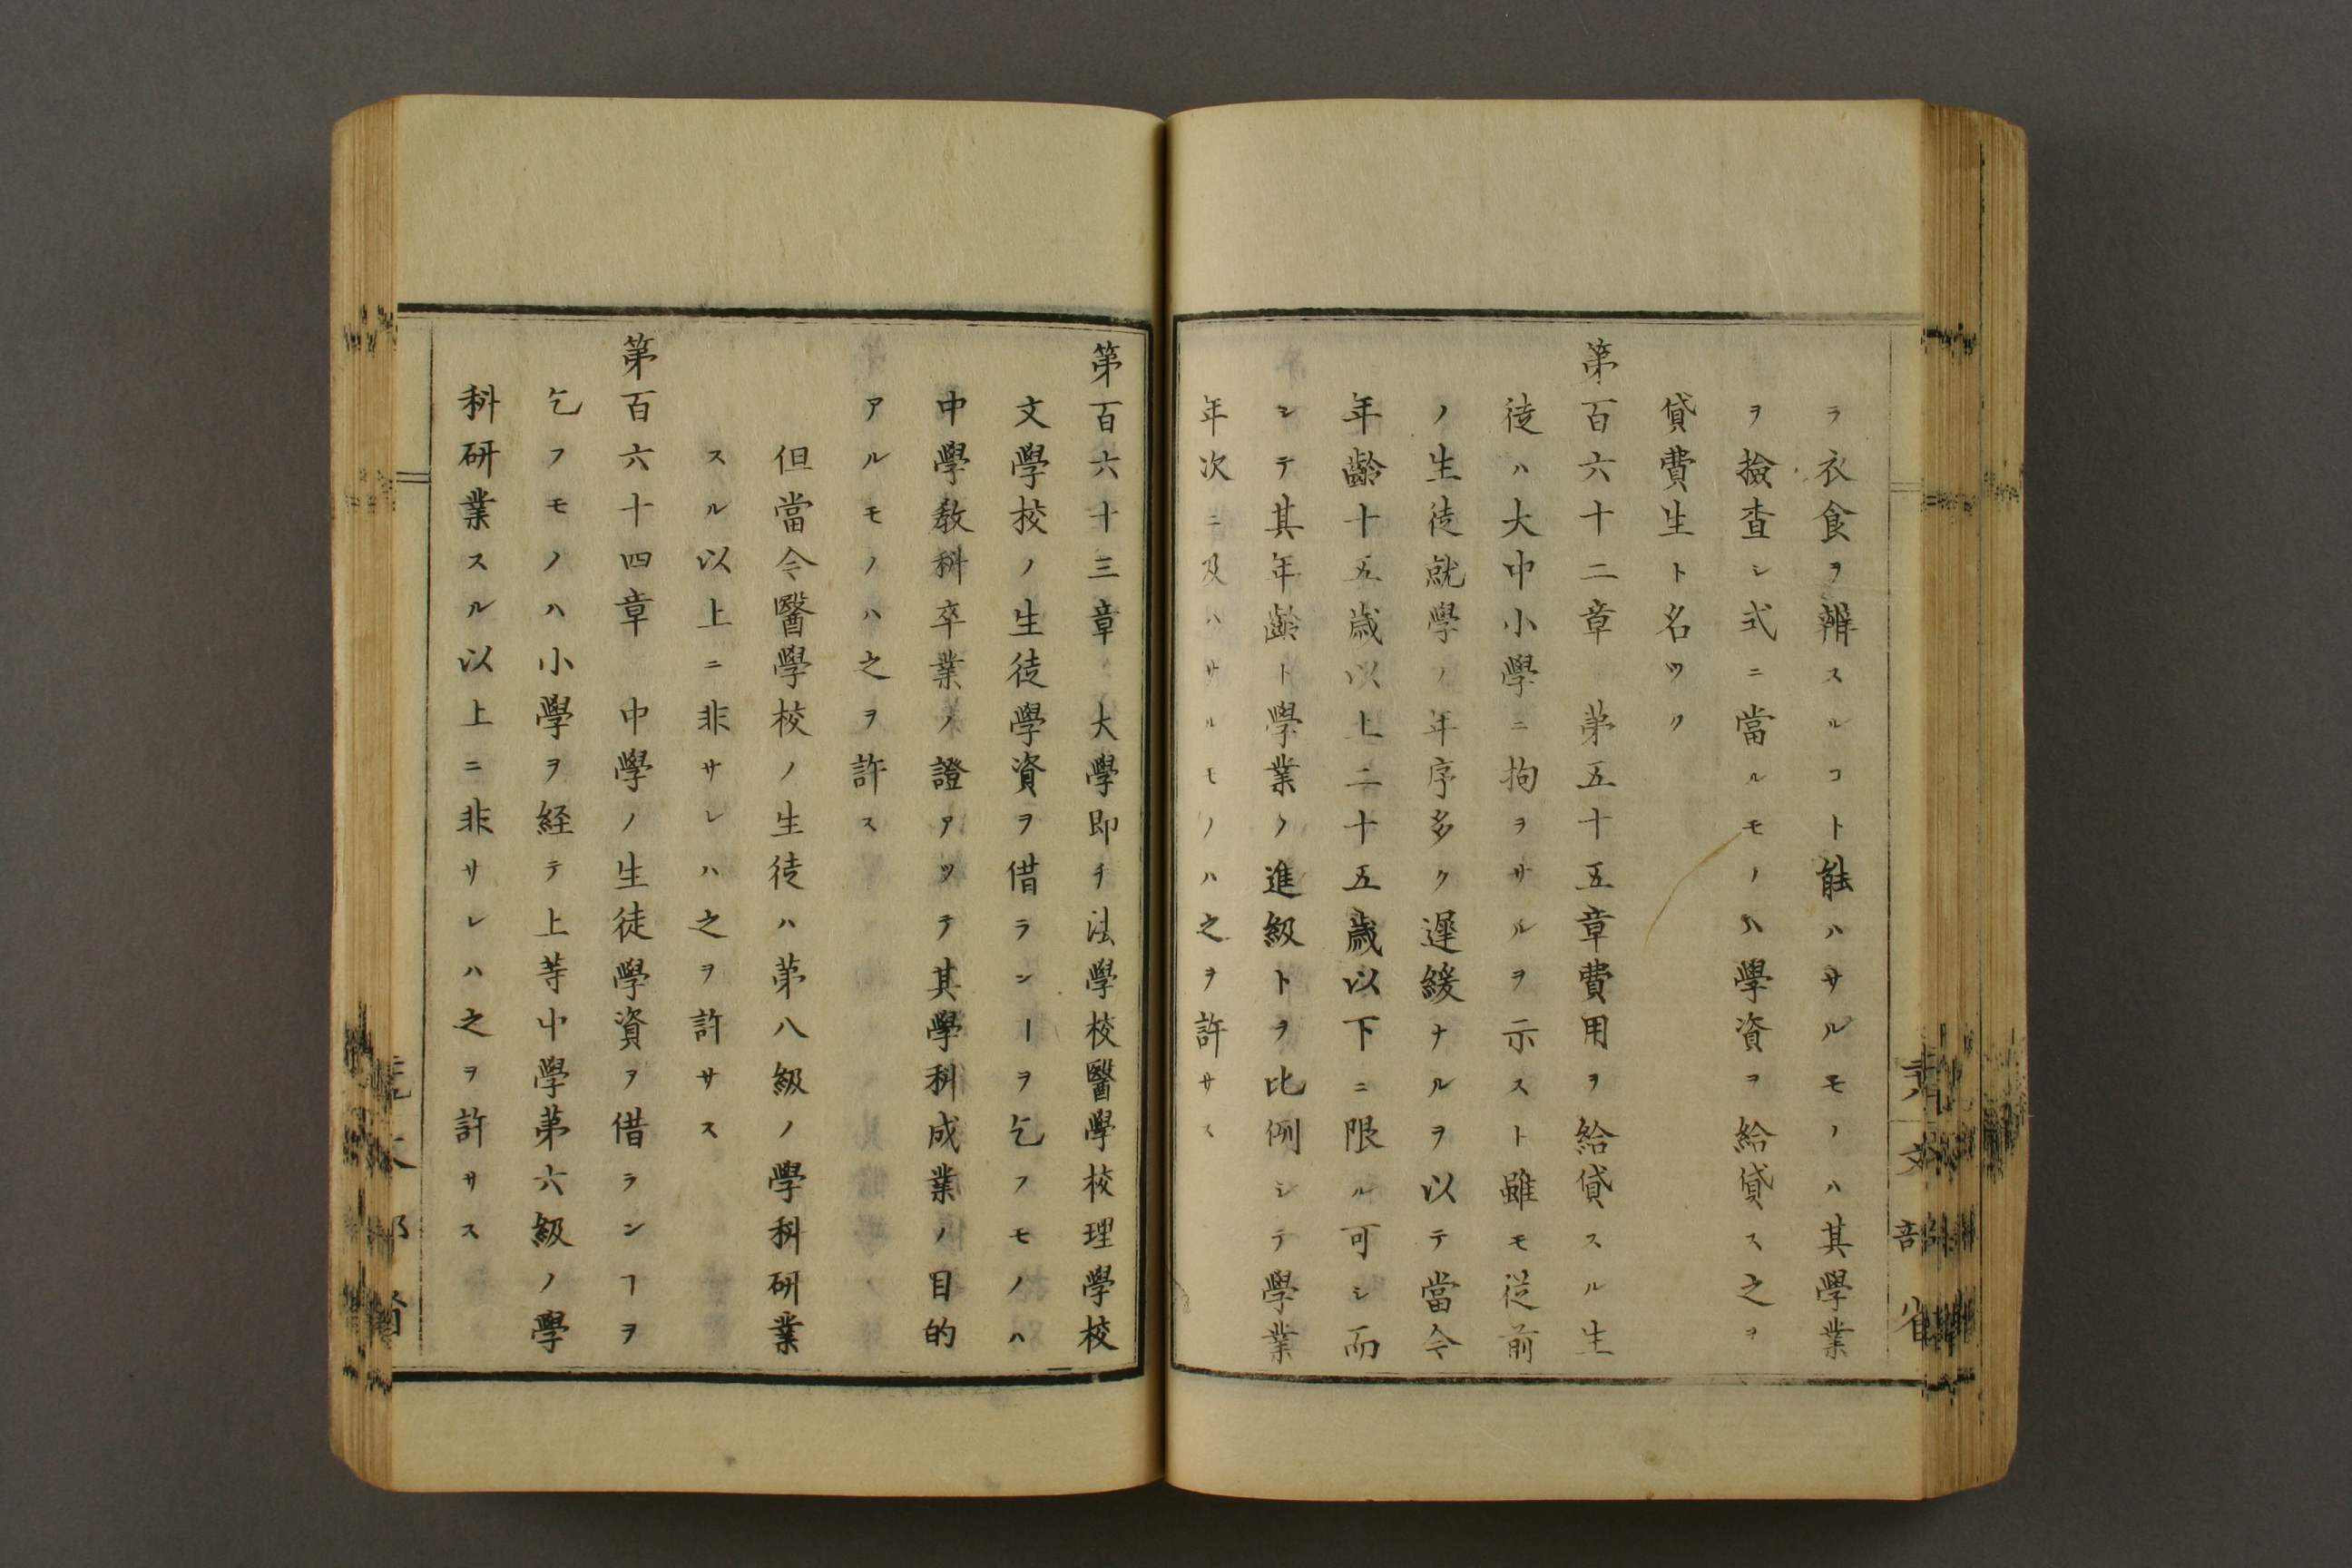 ラ衣食ヲ辨スルコト能ハサルモノハ其學業
ヲ撿査シ式ニ當ルモノハ學資ヲ給貸ス之ヲ
貸費生ト名ツク
第百六十二章　第五十五章費用ヲ給貸スル生
徒ハ大中小學ニ拘ヲサルヲ示スト雖モ従前
ノ生徒就學ノ年序多ク遲緩ナルヲ以テ當今
年齡十五歳以上二十五歳以下ニ限ル可シ而
シテ其年齡ト學業ノ進級トヲ比例シテ學業
年次ニ及ハサルモノハ之ヲ許サス
第百六十三章　大學即チ法學校醫學校理學校
文學校ノ生徒學資ヲ借ランヿヲ乞フモノハ
中學教科卒業ノ證アツテ其學科成業ノ目的
アルモノハ之ヲ許ス
但當令醫學校ノ生徒ハ第八級ノ學科研業
スル以上ニ非サレハ之ヲ許サス
第百六十四章　中學ノ生徒學資ヲ借ランヿヲ
乞フモノハ小學ヲ経テ上等中學第六級ノ學
科研業スル以上ニ非サレハ之ヲ許サス
文部省